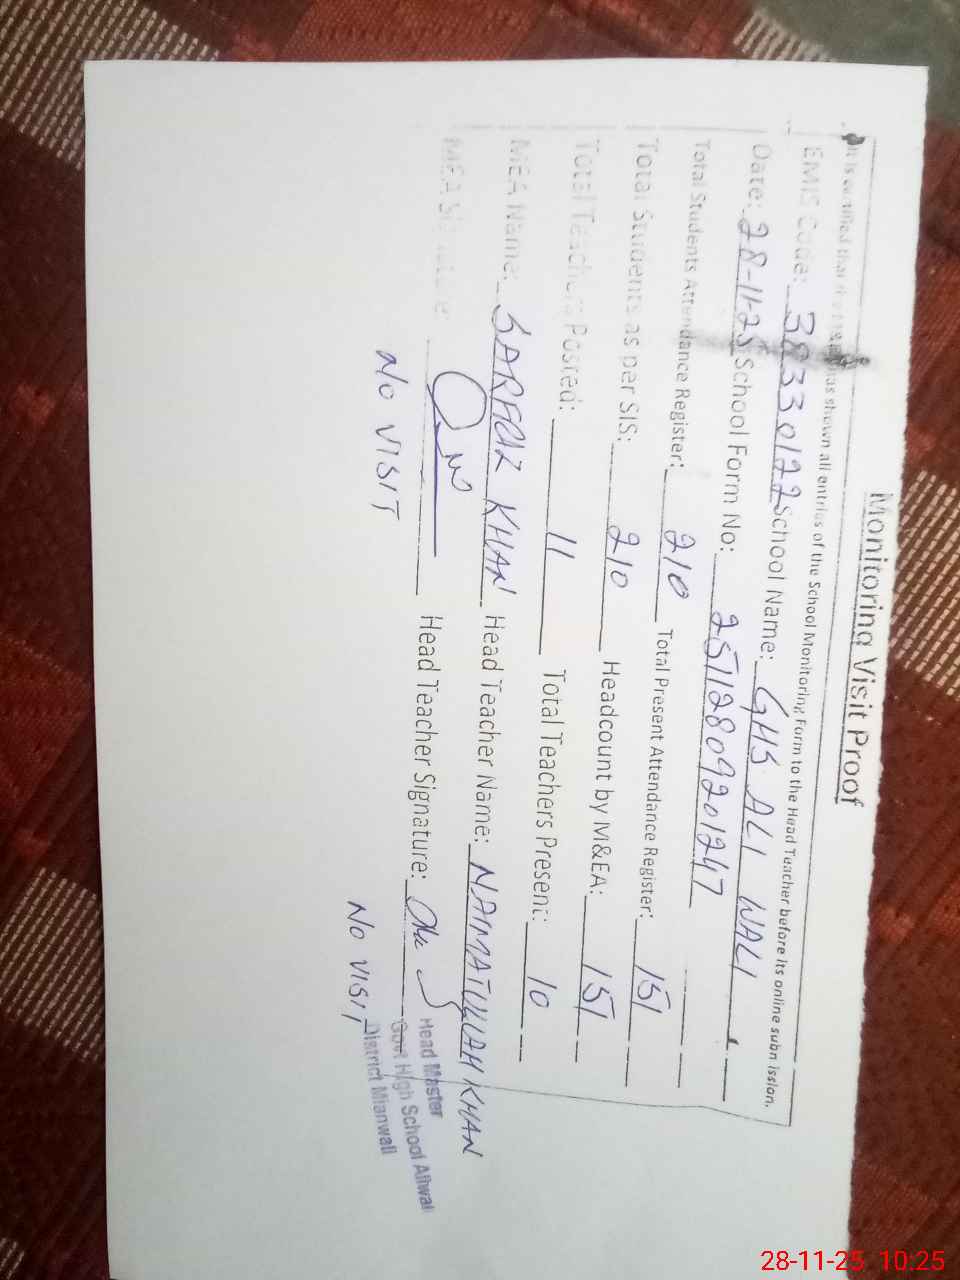 Monitoring Visit Proof
It is certified that the has shown all entries of the School Monitoring Form to the Head Teacher before its online submission.
EMIS Code: 38330122 School Name: GHS ALI WALI
Date: 28-11-25 School Form No: 25112809201247
Total Students Attendance Register: 210 Total Present Attendance Register: 151
Total Students as per SIS: 210 Headcount by M&EA: 151
Total Teachers Posted: 11 Total Teachers Present: 10
MEA Name: SARFRAZ KHAN Head Teacher Name: NAIMATULLAH KHAN
MEA Signature: Head Teacher Signature:
Head Master
Govt High School Aliwali
District Mianwali
NO VISIT
NO VISIT
28-11-25 10:25